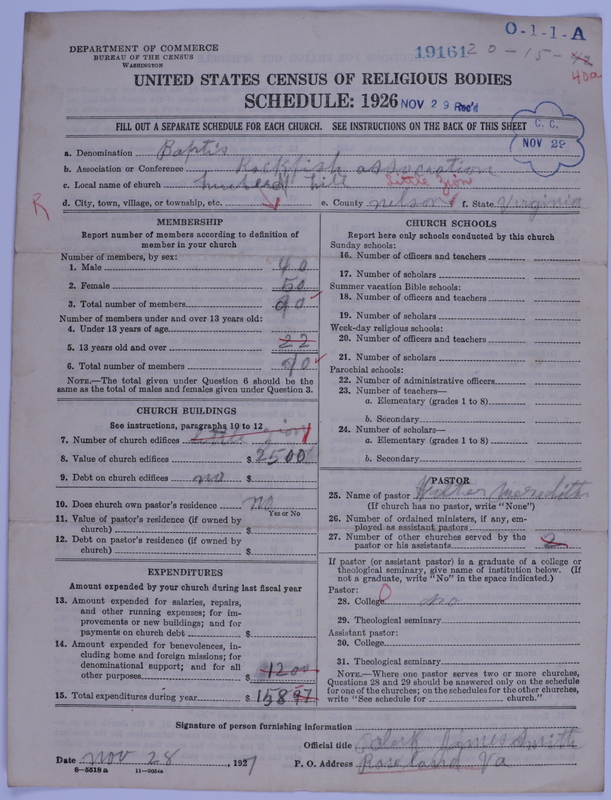 O-1-1-A
DEPARTMENT OF COMMERCE
BUREAU OF THE CENSUS
WASHINGTON
19161 20-15-
40a
UNITED STATES CENSUS OF RELIGIOUS BODIES
SCHEDULE: 1926 NOV 29 Rec'd
FILL OUT A SEPARATE SCHEDULE FOR EACH CHURCH. SEE INSTRUCTIONS ON THE BACK OF THIS SHEET
C. C.
NOV 29
a. Denomination Baptis
b. Association or Conference Rockfish association
c. Local name of church hill Little Zion
R d. City, town, village, or township, etc. e. County nelson f. State Virginia
MEMBERSHIP
Report number of members according to definition of
member in your church
Number of members, by sex:
1. Male 40
2. Female 50
3. Total number of members 90
Number of members under and over 13 years old:
4. Under 13 years of age
5. 13 years old and over 22
6. Total number of members 90
NOTE.—The total given under Question 6 should be the
same as the total of males and females given under Question 3.
CHURCH BUILDINGS
See instructions, paragraphs 10 to 12
7. Number of church edifices little zion 1
8. Value of church edifices $ 2500
9. Debt on church edifices no $
10. Does church own pastor's residence no
Yes or No
11. Value of pastor's residence (if owned by
church) $
12. Debt on pastor's residence (if owned by
church) $
EXPENDITURES
Amount expended by your church during last fiscal year
13. Amount expended for salaries, repairs,
and other running expenses; for im-
provements or new buildings; and for
payments on church debt $
14. Amount expended for benevolences, in-
cluding home and foreign missions; for
denominational support; and for all
other purposes $ 1200
15. Total expenditures during year $ 158
CHURCH SCHOOLS
Report here only schools conducted by this church
Sunday schools:
16. Number of officers and teachers
17. Number of scholars
Summer vacation Bible schools:
18. Number of officers and teachers
19. Number of scholars
Week-day religious schools:
20. Number of officers and teachers
21. Number of scholars
Parochial schools:
22. Number of administrative officers
23. Number of teachers—
a. Elementary (grades 1 to 8)
b. Secondary
24. Number of scholars—
a. Elementary (grades 1 to 8)
b. Secondary
PASTOR
25. Name of pastor Meredith
(If church has no pastor, write "None")
26. Number of ordained ministers, if any, em-
ployed as assistant pastors
27. Number of other churches served by the
pastor or his assistants 2
If pastor (or assistant pastor) is a graduate of a college or
theological seminary, give name of institution below. (If
not a graduate, write "No" in the space indicated.)
Pastor:
28. College no
29. Theological seminary
Assistant pastor:
30. College
31. Theological seminary
NOTE.—Where one pastor serves two or more churches,
Questions 28 and 29 should be answered only on the schedule
for one of the churches; on the schedules for the other churches,
write "See schedule for church."
Signature of person furnishing information
Official title Clerk Agnes Smith
Date nov 28, 1927 P. O. Address Roseland Va
8-5518 a 11-9054a